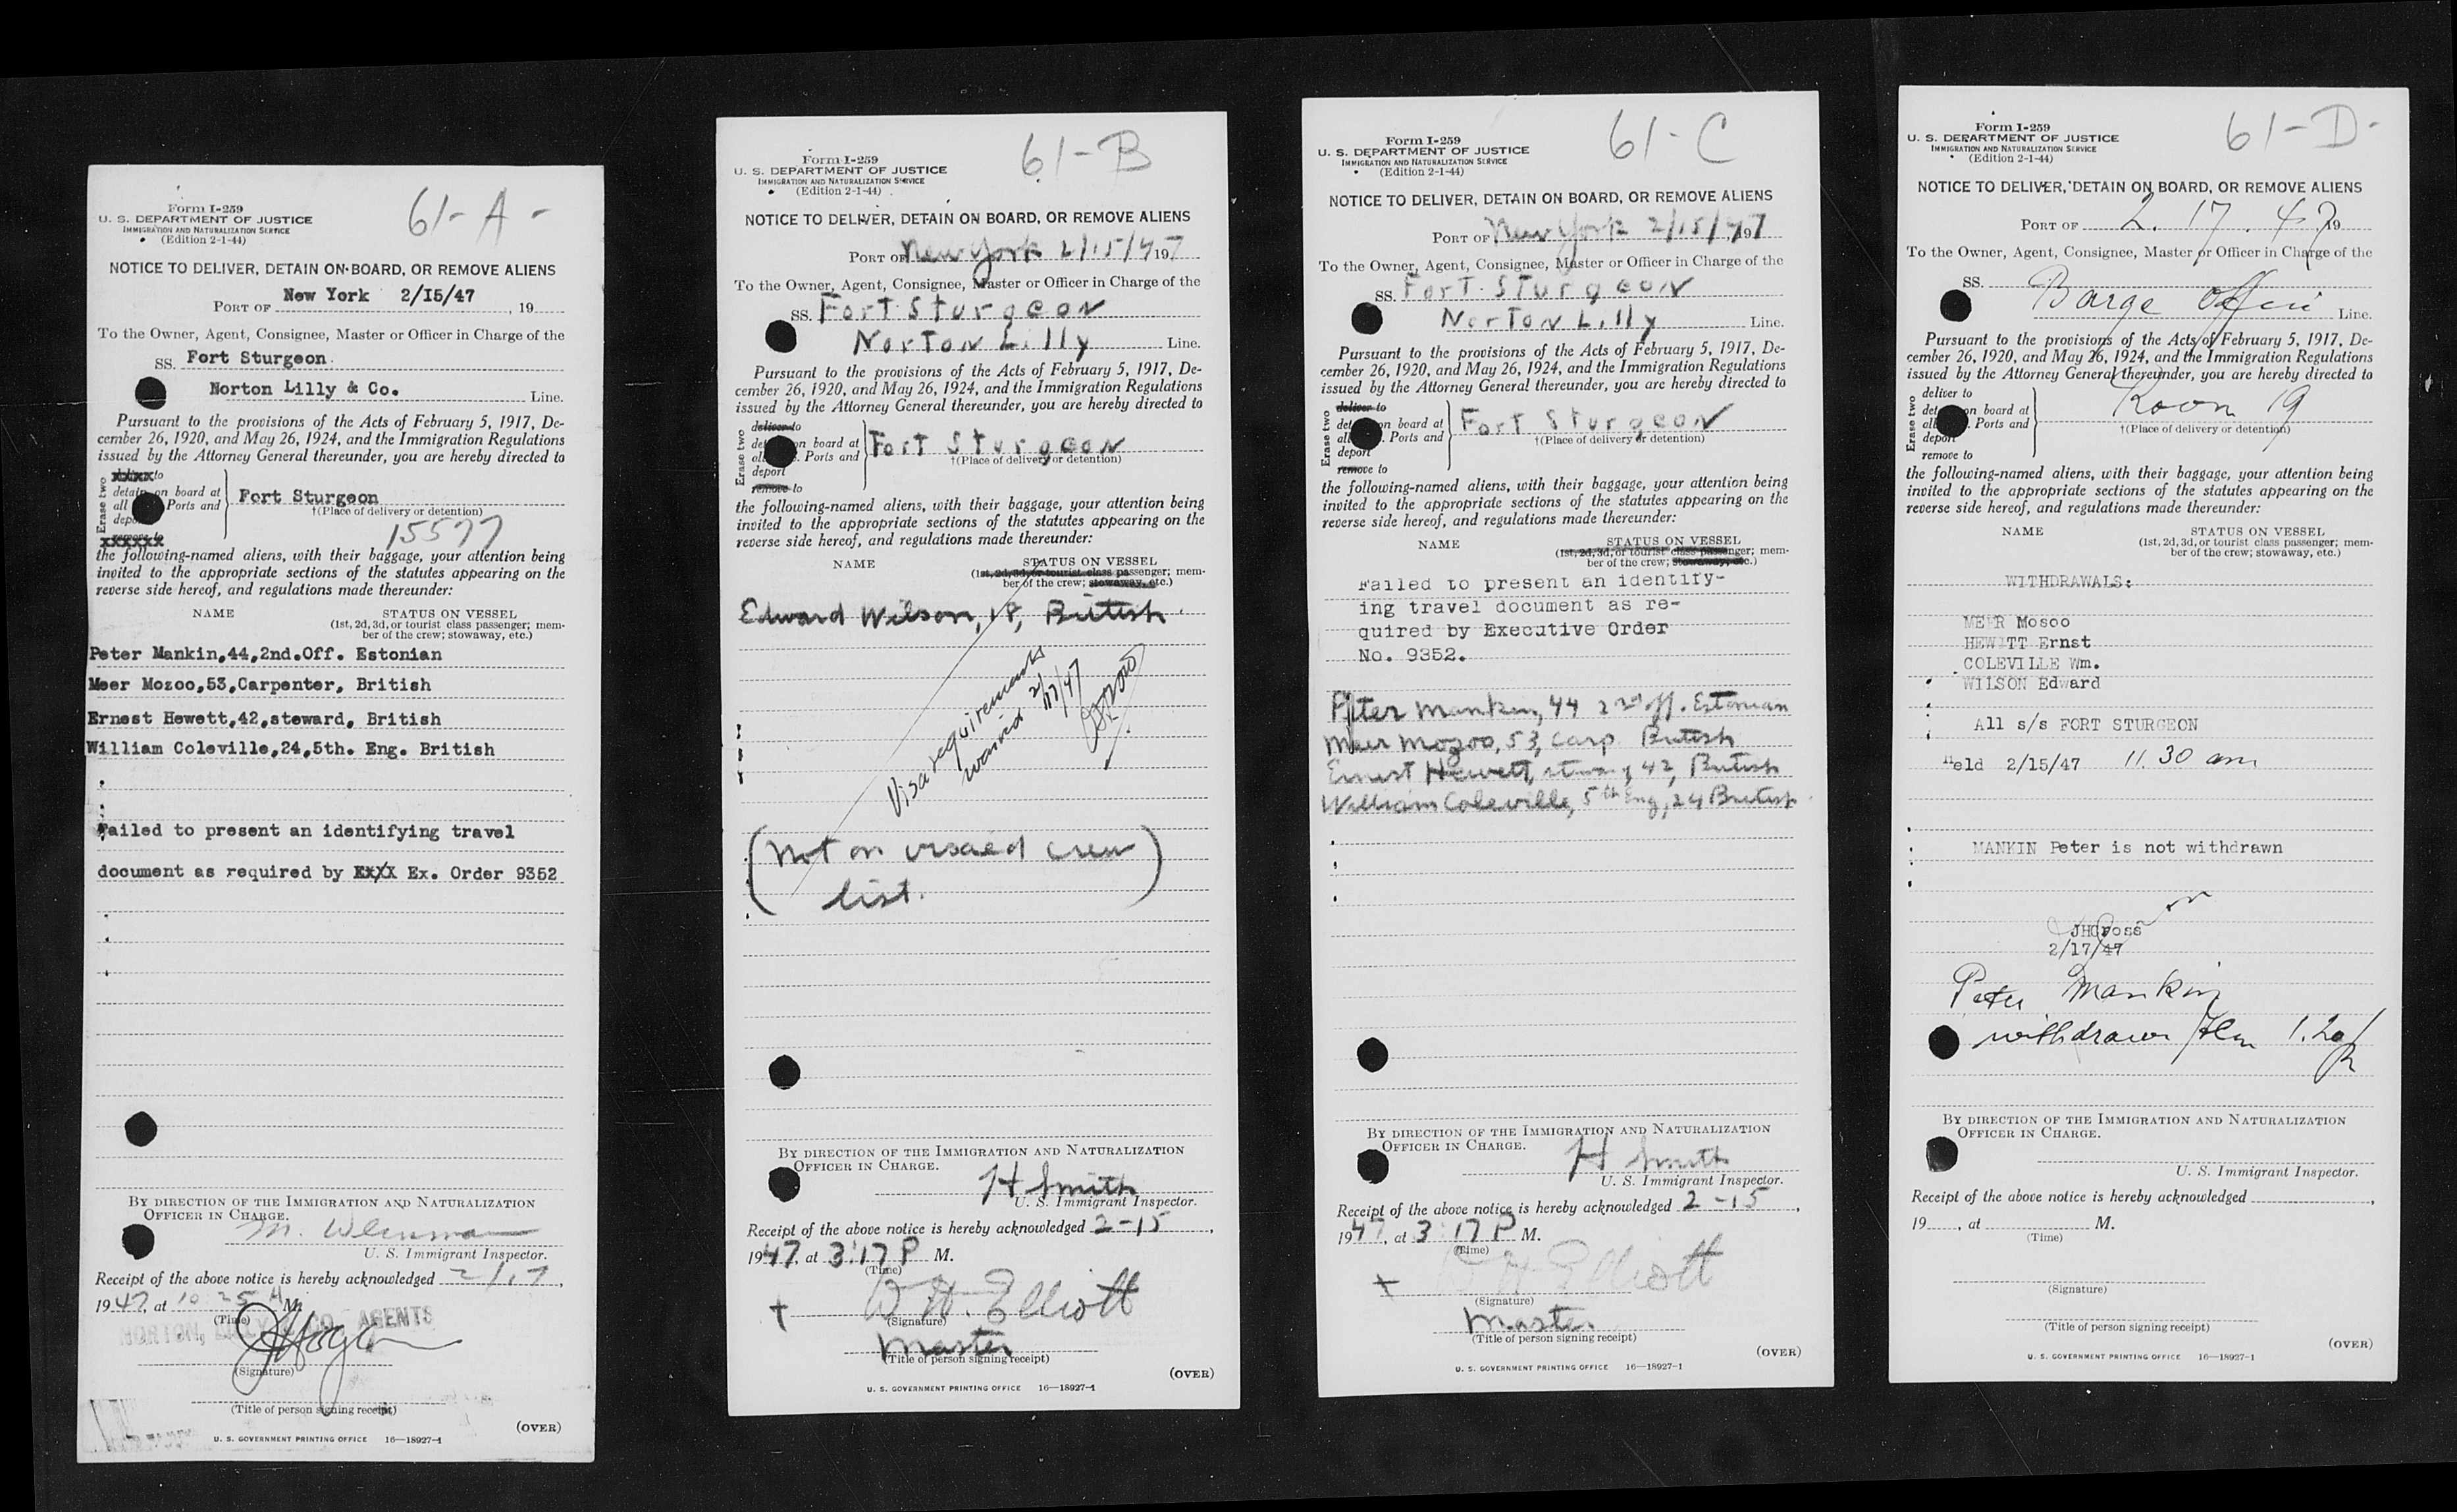 61-A-
Form I-259
U. S. DEPARTMENT OF JUSTICE
IMMIGRATION AND NATURALIZATION SERVICE
(Edition 2-1-44)
NOTICE TO DELIVER, DETAIN ON BOARD, OR REMOVE ALIENS
PORT OF New York 2/I5/47, 19
To the Owner, Agent, Consignee, Master or Officer in Charge of the
SS. Fort Sturgeon.
Norton Lilly & Co. Line.
Pursuant to the provisions of the Acts of February 5, 1917, De-
cember 26, 1920, and May 26, 1924, and the Immigration Regulations
issued by the Attorney General thereunder, you are hereby directed to
Erase two
to
detain on board at
all Ports and
Fort Sturgeon
†(Place of delivery or detention)
15577
the following-named aliens, with their baggage, your attention being
invited to the appropriate sections of the statutes appearing on the
reverse side hereof, and regulations made thereunder:
NAME STATUS ON VESSEL
(1st, 2d, 3d, or tourist class passenger; mem-
ber of the crew; stowaway, etc.)
Peter Mankin,44,2nd.Off. Estonian
Meer Mozoo,53,Carpenter, British
Ernest Hewett,42,steward, British
William Coleville,24,5th. Eng. British
Failed to present an identifying travel
document as required by Ex. Order 9352
BY DIRECTION OF THE IMMIGRATION AND NATURALIZATION
OFFICER IN CHARGE.
U. S. Immigrant Inspector.
Receipt of the above notice is hereby acknowledged 2/17,
1947, at 10 25 A M.
(Time)
NORTON, LILLY & CO. AGENTS
(Signature)
(Title of person signing receipt)
(OVER)
U. S. GOVERNMENT PRINTING OFFICE 16—18927-1
61-B
Form I-259
U. S. DEPARTMENT OF JUSTICE
IMMIGRATION AND NATURALIZATION SERVICE
(Edition 2-1-44)
NOTICE TO DELIVER, DETAIN ON BOARD, OR REMOVE ALIENS
PORT OF New York 2/15/47 197
To the Owner, Agent, Consignee, Master or Officer in Charge of the
SS. Fort Sturgeon
Norton Lilly Line.
Pursuant to the provisions of the Acts of February 5, 1917, De-
cember 26, 1920, and May 26, 1924, and the Immigration Regulations
issued by the Attorney General thereunder, you are hereby directed to
Erase two
deliver to
on board at
Ports and
deport
remove to
Fort Sturgeon
†(Place of delivery or detention)
the following-named aliens, with their baggage, your attention being
invited to the appropriate sections of the statutes appearing on the
reverse side hereof, and regulations made thereunder:
NAME STATUS ON VESSEL
(1st, 2d, 3d, or tourist class passenger; mem-
ber of the crew; stowaway, etc.)
Edward Wilson, 18, British
Visa requirements
waived 2/17/47
(Not on visaed crew
list.)
BY DIRECTION OF THE IMMIGRATION AND NATURALIZATION
OFFICER IN CHARGE.
H Smith
U. S. Immigrant Inspector.
Receipt of the above notice is hereby acknowledged 2-15,
1947, at 3:17 P M.
(Time)
W. H. Elliott
(Signature)
Master
(Title of person signing receipt)
(OVER)
U. S. GOVERNMENT PRINTING OFFICE 16—18927-1
61-C
Form I-259
U. S. DEPARTMENT OF JUSTICE
IMMIGRATION AND NATURALIZATION SERVICE
(Edition 2-1-44)
NOTICE TO DELIVER, DETAIN ON BOARD, OR REMOVE ALIENS
PORT OF New York 2/15/47, 197
To the Owner, Agent, Consignee, Master or Officer in Charge of the
SS. Fort Sturgeon
Norton Lilly Line.
Pursuant to the provisions of the Acts of February 5, 1917, De-
cember 26, 1920, and May 26, 1924, and the Immigration Regulations
issued by the Attorney General thereunder, you are hereby directed to
Erase two
deliver to
on board at
Ports and
deport
remove to
Fort Sturgeon
†(Place of delivery or detention)
the following-named aliens, with their baggage, your attention being
invited to the appropriate sections of the statutes appearing on the
reverse side hereof, and regulations made thereunder:
NAME STATUS ON VESSEL
(1st, 2d, 3d, or tourist class passenger; mem-
ber of the crew; stowaway, etc.)
Failed to present an identify-
ing travel document as re-
quired by Executive Order
No. 9352.
Peter Mankin, 44 2nd off. Estonian
Meer Mozoo, 53, Carp British
Ernest Hewett, 42, British
William Coleville, 5th Eng, 24 British
BY DIRECTION OF THE IMMIGRATION AND NATURALIZATION
OFFICER IN CHARGE.
H Smith
U. S. Immigrant Inspector.
Receipt of the above notice is hereby acknowledged 2-15,
1947, at 3:17 P M.
(Time)
W H Elliott
(Signature)
Master
(Title of person signing receipt)
(OVER)
U. S. GOVERNMENT PRINTING OFFICE 16—18927-1
61-D-
Form I-259
U. S. DEPARTMENT OF JUSTICE
IMMIGRATION AND NATURALIZATION SERVICE
(Edition 2-1-44)
NOTICE TO DELIVER, DETAIN ON BOARD, OR REMOVE ALIENS
PORT OF 2. 17. 47, 19
To the Owner, Agent, Consignee, Master or Officer in Charge of the
SS. Barge Office Line.
Pursuant to the provisions of the Acts of February 5, 1917, De-
cember 26, 1920, and May 26, 1924, and the Immigration Regulations
issued by the Attorney General thereunder, you are hereby directed to
Erase two
deliver to
on board at
Ports and
deport
remove to
Room 19
†(Place of delivery or detention)
the following-named aliens, with their baggage, your attention being
invited to the appropriate sections of the statutes appearing on the
reverse side hereof, and regulations made thereunder:
NAME STATUS ON VESSEL
(1st, 2d, 3d, or tourist class passenger; mem-
ber of the crew; stowaway, etc.)
WITHDRAWALS:
MEER Mosoo
HEWITT Ernst
COLEVILLE Wm.
WILSON Edward
All s/s FORT STURGEON
Held 2/15/47 11.30 am
MANKIN Peter is not withdrawn
JHCross
2/17/47
Peter Mankin
withdrawn
BY DIRECTION OF THE IMMIGRATION AND NATURALIZATION
OFFICER IN CHARGE.
U. S. Immigrant Inspector.
Receipt of the above notice is hereby acknowledged ,
19 , at M.
(Time)
(Signature)
(Title of person signing receipt)
(OVER)
U. S. GOVERNMENT PRINTING OFFICE 16—18927-1